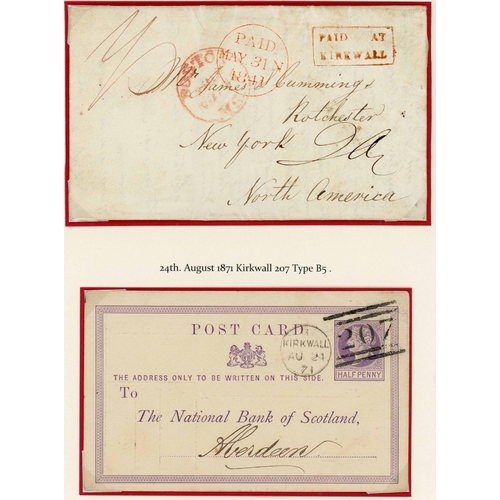 PAID
MAY 31 N
1841
PAID AT
KIRKWALL
Mr James Cummings
Rotchester
New York
North America
24th. August 1871 Kirkwall 207 Type B5 .
POST CARD
KIRKWALL
AU 24
71
207
HALF PENNY
THE ADDRESS ONLY TO BE WRITTEN ON THIS SIDE.
To
The National Bank of Scotland,
Aberdeen